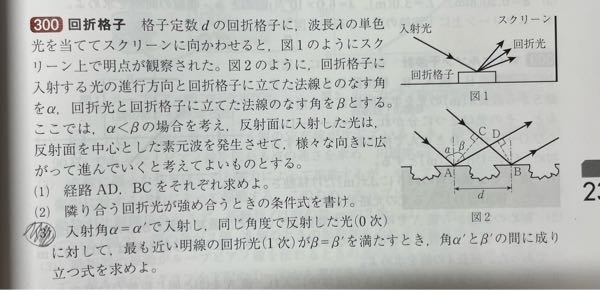 300 回折格子 格子定数dの回折格子に，波長λの単色
光を当ててスクリーンに向かわせると，図1のようにスク
リーン上で明点が観察された。図2のように，回折格子に
入射する光の進行方向と回折格子に立てた法線とのなす角
をα，回折光と回折格子に立てた法線のなす角をβとする。
ここでは，α<βの場合を考え，反射面に入射した光は，
反射面を中心とした素元波を発生させて，様々な向きに広
がって進んでいくと考えてよいものとする。
(1) 経路AD，BCをそれぞれ求めよ。
(2) 隣り合う回折光が強め合うときの条件式を書け。
(3) 入射角α=α′で入射し，同じ角度で反射した光(0次)
に対して，最も近い明線の回折光(1次)がβ=β′を満たすとき，角α′とβ′の間に成り
立つ式を求めよ。
スクリーン
入射光
回折光
回折格子
図1
C
D
α
β
A
B
d
図2
23